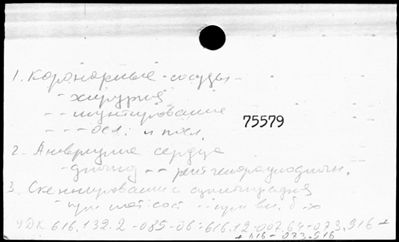 1. Коронарные сосуды -
- хирургия
- - шунтирование
- - - осл. и посл.
75579
2. Аневризма сердца
- диагн. - - рентгенорадиодиагн.
3. Сканирование и сцинтиграфия
- при
УДК 616.132.2-089-06:616.12-007.64-073.916 +
+ 616-073.916